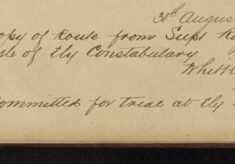 30th Augus
opy of Route from Supt
sle of Ely Constabulary
Whit
ommitted for trial at Ely